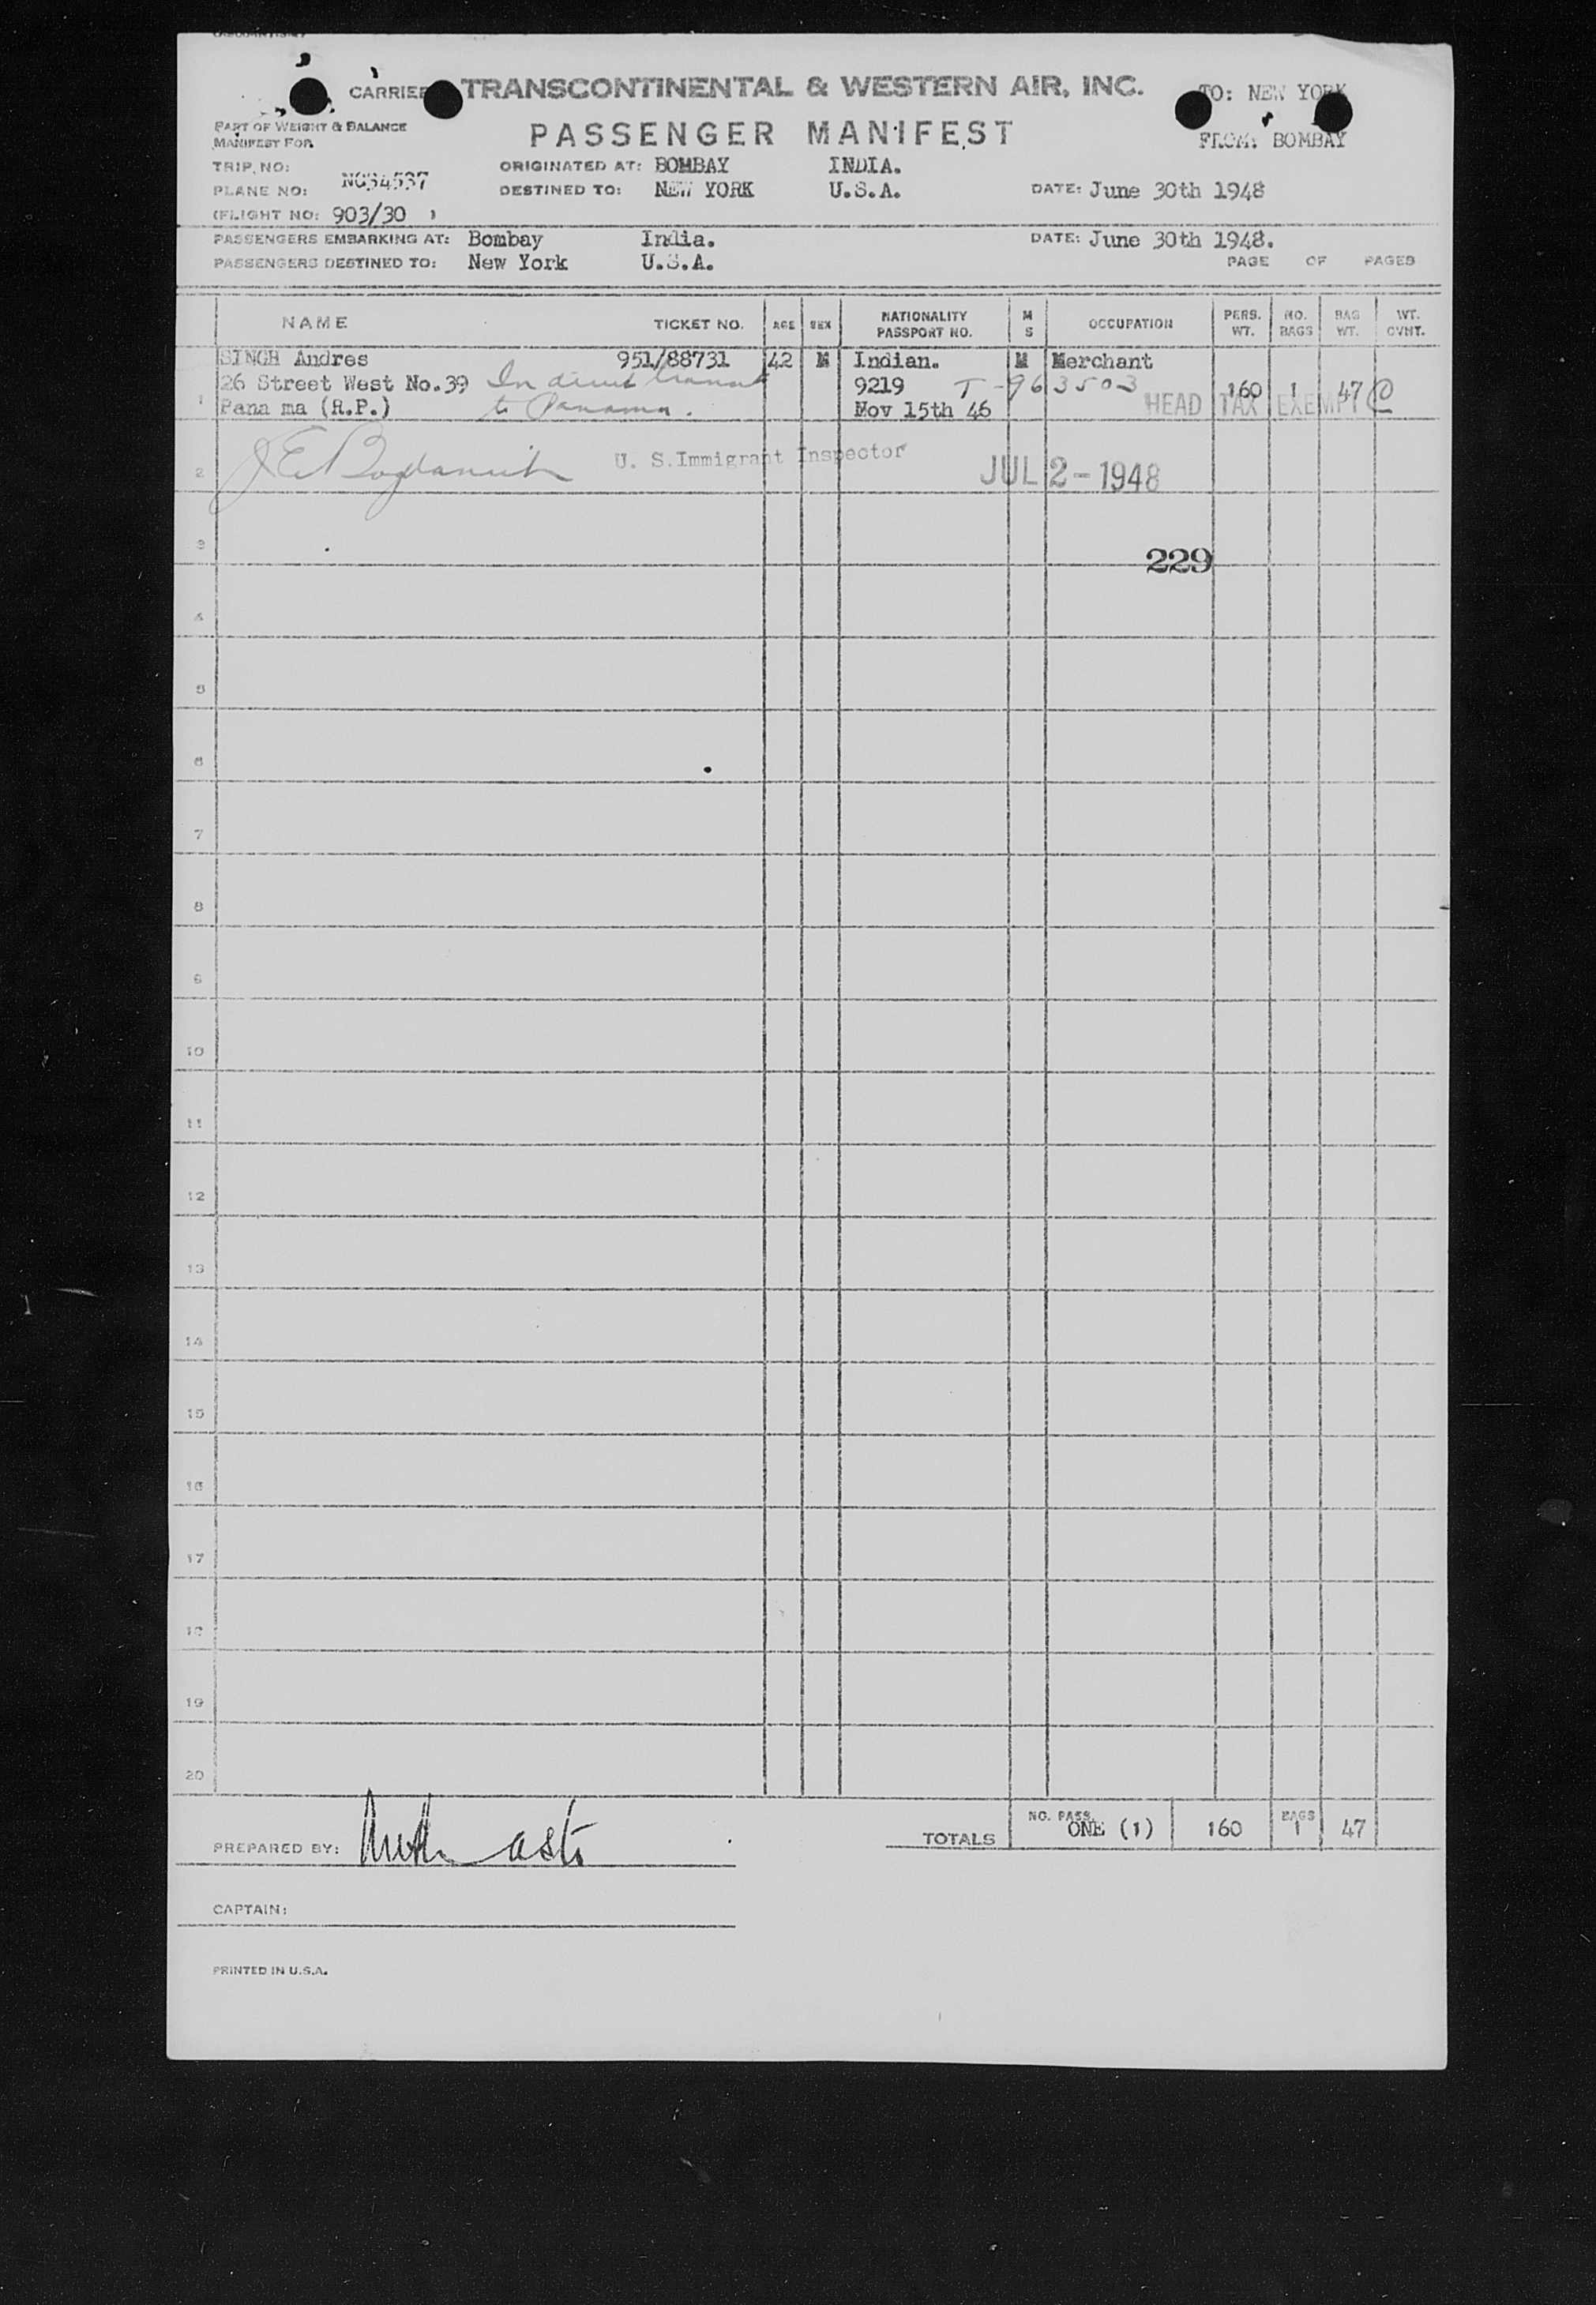 CARRIER TRANSCONTINENTAL & WESTERN AIR, INC. TO: NEW YORK
PART OF WEIGHT & BALANCE
MANIFEST FOR
PASSENGER MANIFEST FROM: BOMBAY
TRIP NO: ORIGINATED AT: BOMBAY INDIA.
PLANE NO: NC34537 DESTINED TO: NEW YORK U.S.A. DATE: June 30th 1948
(FLIGHT NO: 903/30 )
PASSENGERS EMBARKING AT: Bombay India. DATE: June 30th 1948.
PASSENGERS DESTINED TO: New York U.S.A. PAGE OF PAGES
NAME TICKET NO. AGE SEX NATIONALITY PASSPORT NO. M S OCCUPATION PERS. WT. NO. BAGS BAG WT. WT. CVNT.
SINGH Andres 951/88731 42 M Indian. M Merchant
26 Street West No.39 In direct transit 9219 T-963503
1 Pana ma (R.P.) to Panama. Nov 15th 46 160 1 47
HEAD TAX EXEMPT
2 U. S. Immigrant Inspector JUL 2-1948
3
229
4
5
6
7
8
9
10
11
12
13
14
15
16
17
18
19
20
PREPARED BY: TOTALS NO. PASS. ONE (1) 160 BAGS 1 47
CAPTAIN:
PRINTED IN U.S.A.